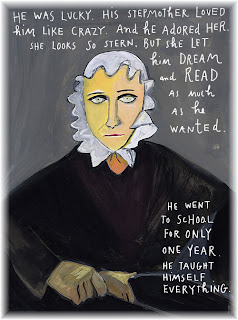 HE WAS LUCKY. HIS STEPMOTHER LOVED
HIM LIKE CRAZY. And he ADORED HER.
SHE LOOKS SO STERN. BUT SHE LET
him DREAM
and READ
as much
as he
WANTED.
HE WENT
TO SCHOOL
FOR ONLY
ONE YEAR.
HE TAUGHT
HIMSELF
EVERYTHING.